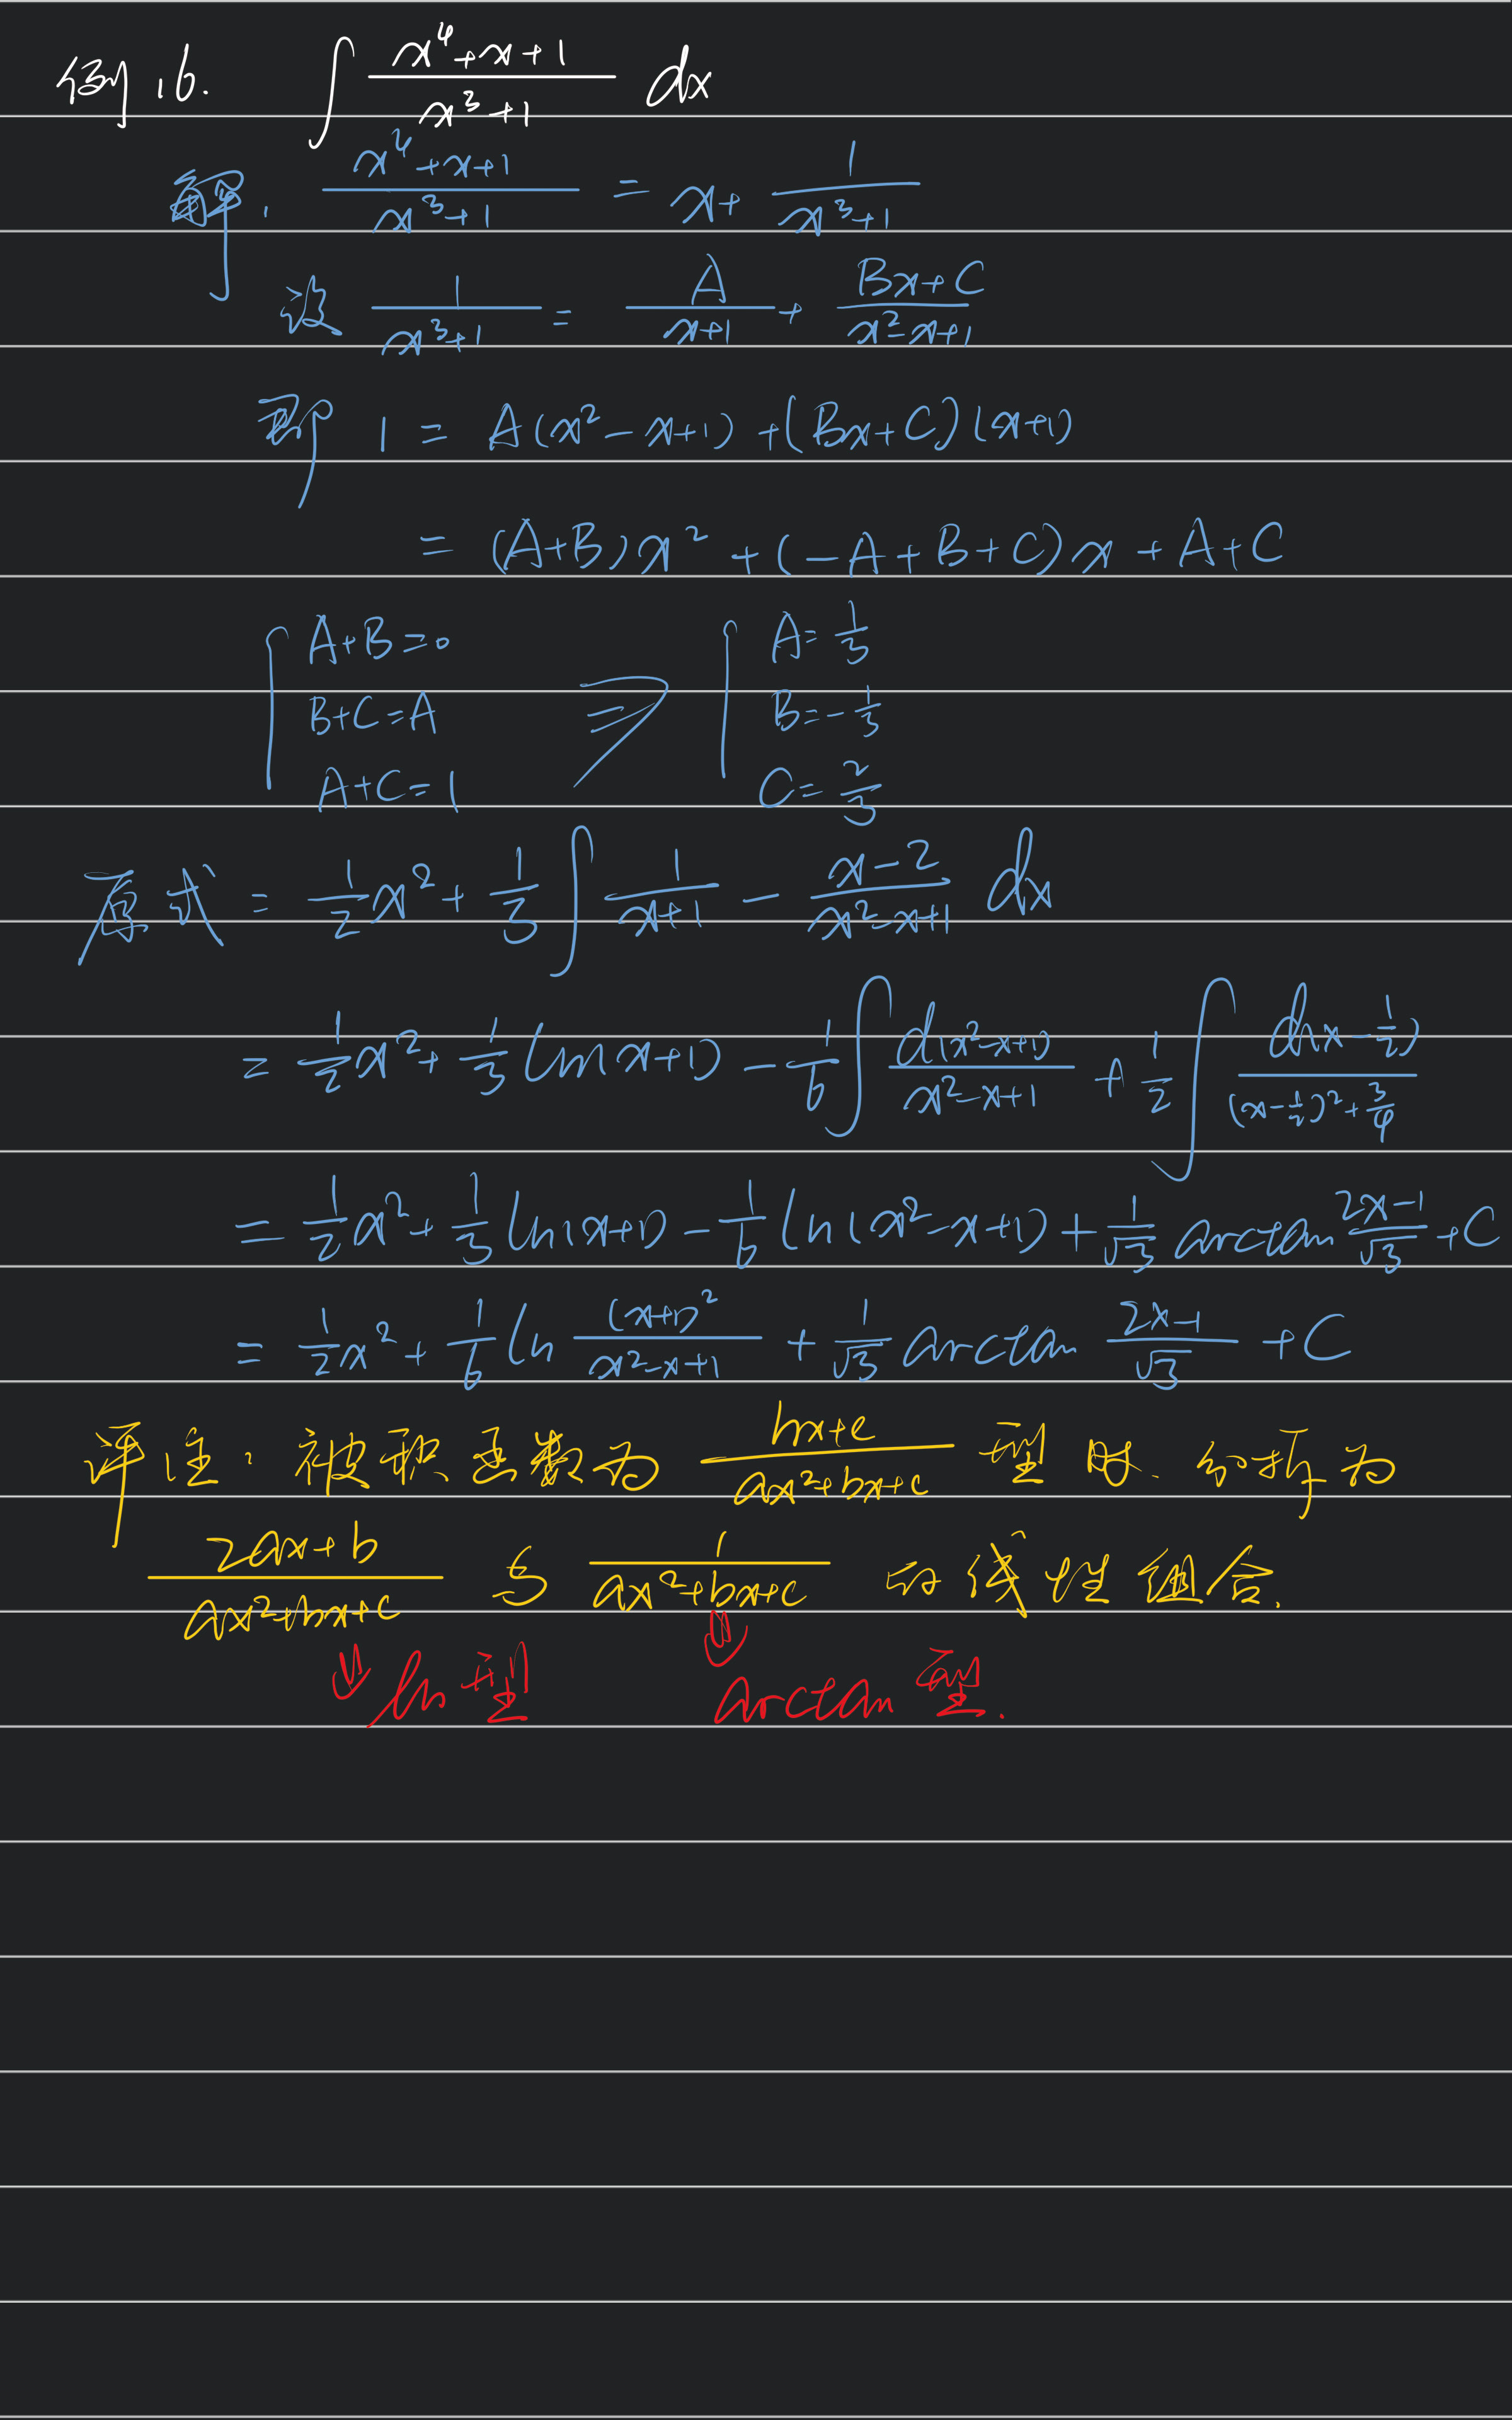 例16. ∫ (x⁴+x+1)/(x³+1) dx
解. (x⁴+x+1)/(x³+1) = x + 1/(x³+1)
设 1/(x³+1) = A/(x+1) + (Bx+C)/(x²-x+1)
即 1 = A(x²-x+1) + (Bx+C)(x+1)
= (A+B)x² + (-A+B+C)x + A+C
{ A+B=0 ⇒ { A=1/3
B+C=A B=-1/3
A+C=1 C=2/3
原式 = 1/2 x² + 1/3 ∫ 1/(x+1) - (x-2)/(x²-x+1) dx
= 1/2 x² + 1/3 ln(x+1) - 1/6 ∫ d(x²-x+1)/(x²-x+1) + 1/2 ∫ d(x-1/2)/((x-1/2)²+3/4)
= 1/2 x² + 1/3 ln(x+1) - 1/6 ln(x²-x+1) + 1/√3 arctan (2x-1)/√3 + C
= 1/2 x² + 1/6 ln (x+1)²/(x²-x+1) + 1/√3 arctan (2x-1)/√3 + C
评注: 被积函数为 (mx+e)/(ax²+bx+c) 型时. 可拆为
(2ax+b)/(ax²+bx+c) 与 1/(ax²+bx+c) 的线性组合.
⇓ ln型 ⇓ arctan型.